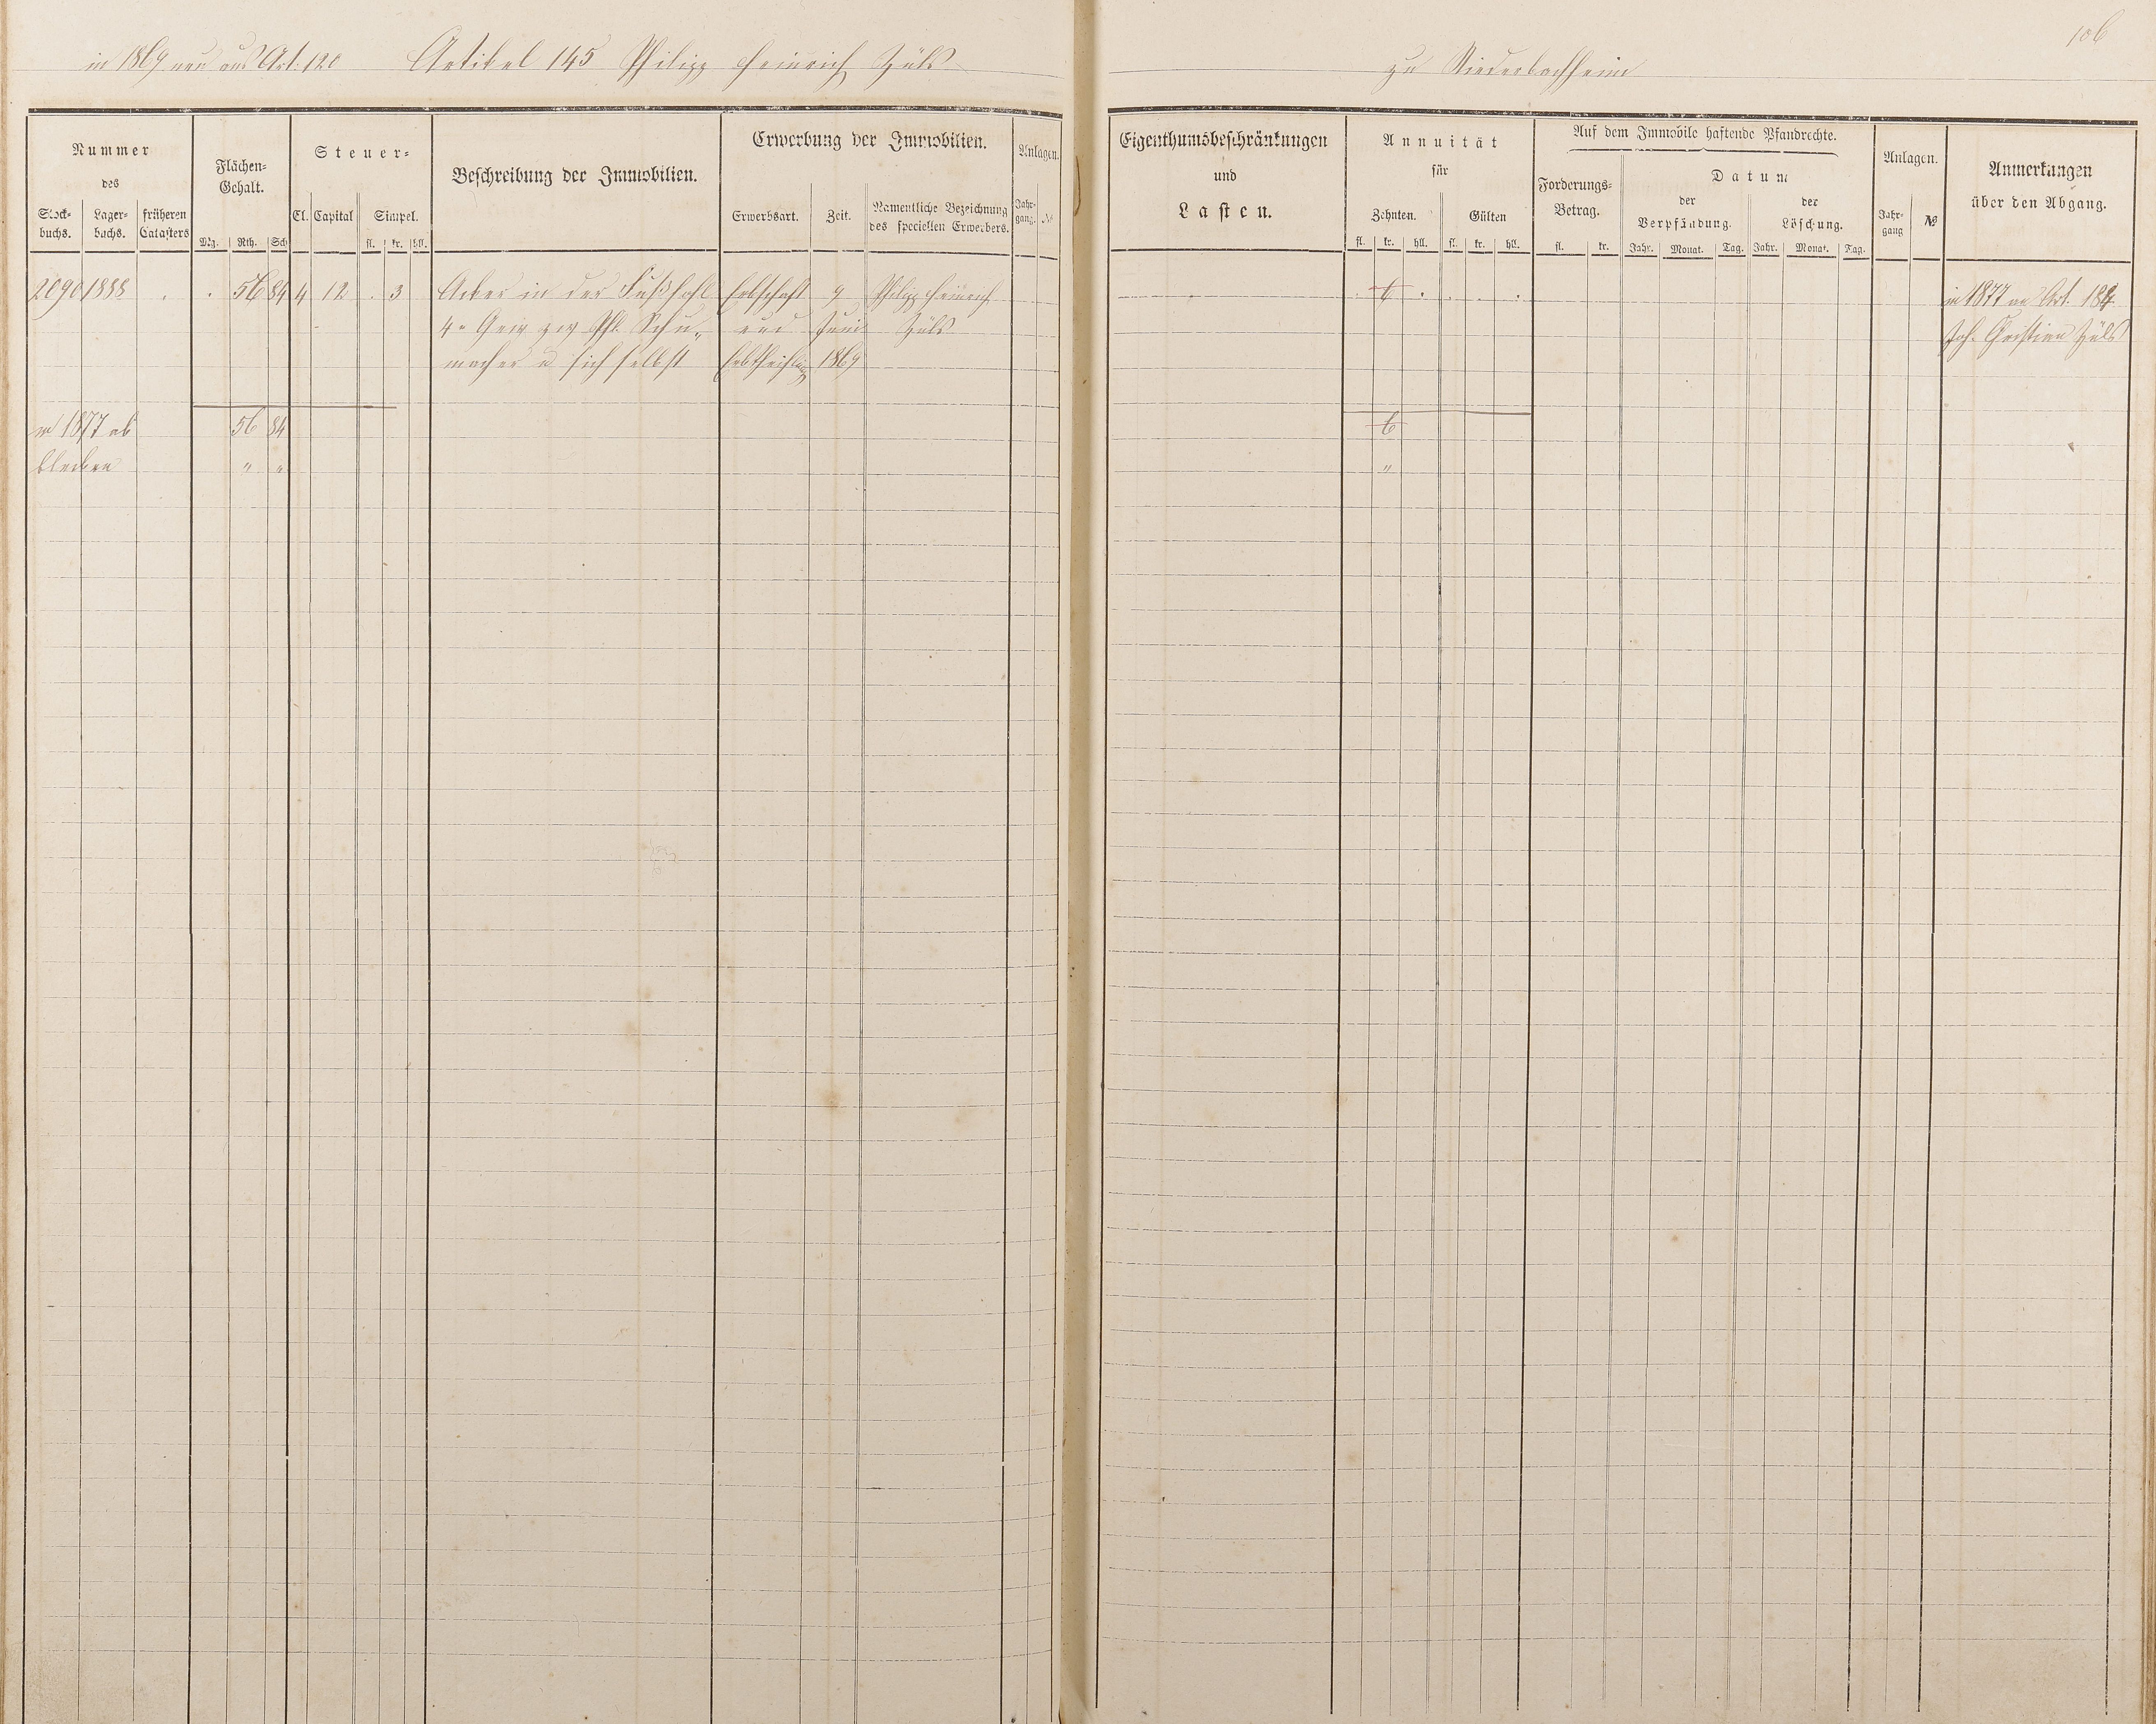 106
in 1869 neu aus Art: 120 Artikel 145 Philipp Heinrich Hüls zu Niederbachheim
Nummer
des
Stock-
buchs.
Lager-
buchs.
früheren
Catasters
Flächen-
Gehalt.
Mg. Rth. Sch
Steuer-
Cl. Capital Simpel.
fl. kr. hll.
Beschreibung der Immobilien.
Erwerbung der Immobilien.
Erwerbsart. Zeit.
Namentliche Bezeichnung
des speciellen Erwerbers.
Anlagen.
Jahr-
gang. №
Eigenthumsbeschränkungen
und
Lasten.
Annuität
für
Zehnten. Gülten
fl. kr. hll. fl. kr. hll.
Auf dem Immobile haftende Pfandrechte.
Forderungs-
Betrag.
fl. kr.
Datum
der
Verpfändung.
Jahr. Monat. Tag.
der
Löschung.
Jahr. Monat. Tag.
Anlagen.
Jahr-
gang №
Anmerkungen
über den Abgang.
2090 1888 . . 56 84 4 12 . 3 Acker in der Erbschaft 9 Philipp Heinrich . 6 . . . . in 1877 an Art. 184
4r zw Phl. Schu- und Juni Hüls Joh. Christian Hüls
macher u sich selbst Erbtheilung 1869
in 1877 ab 56 84 6
bleiben " " "